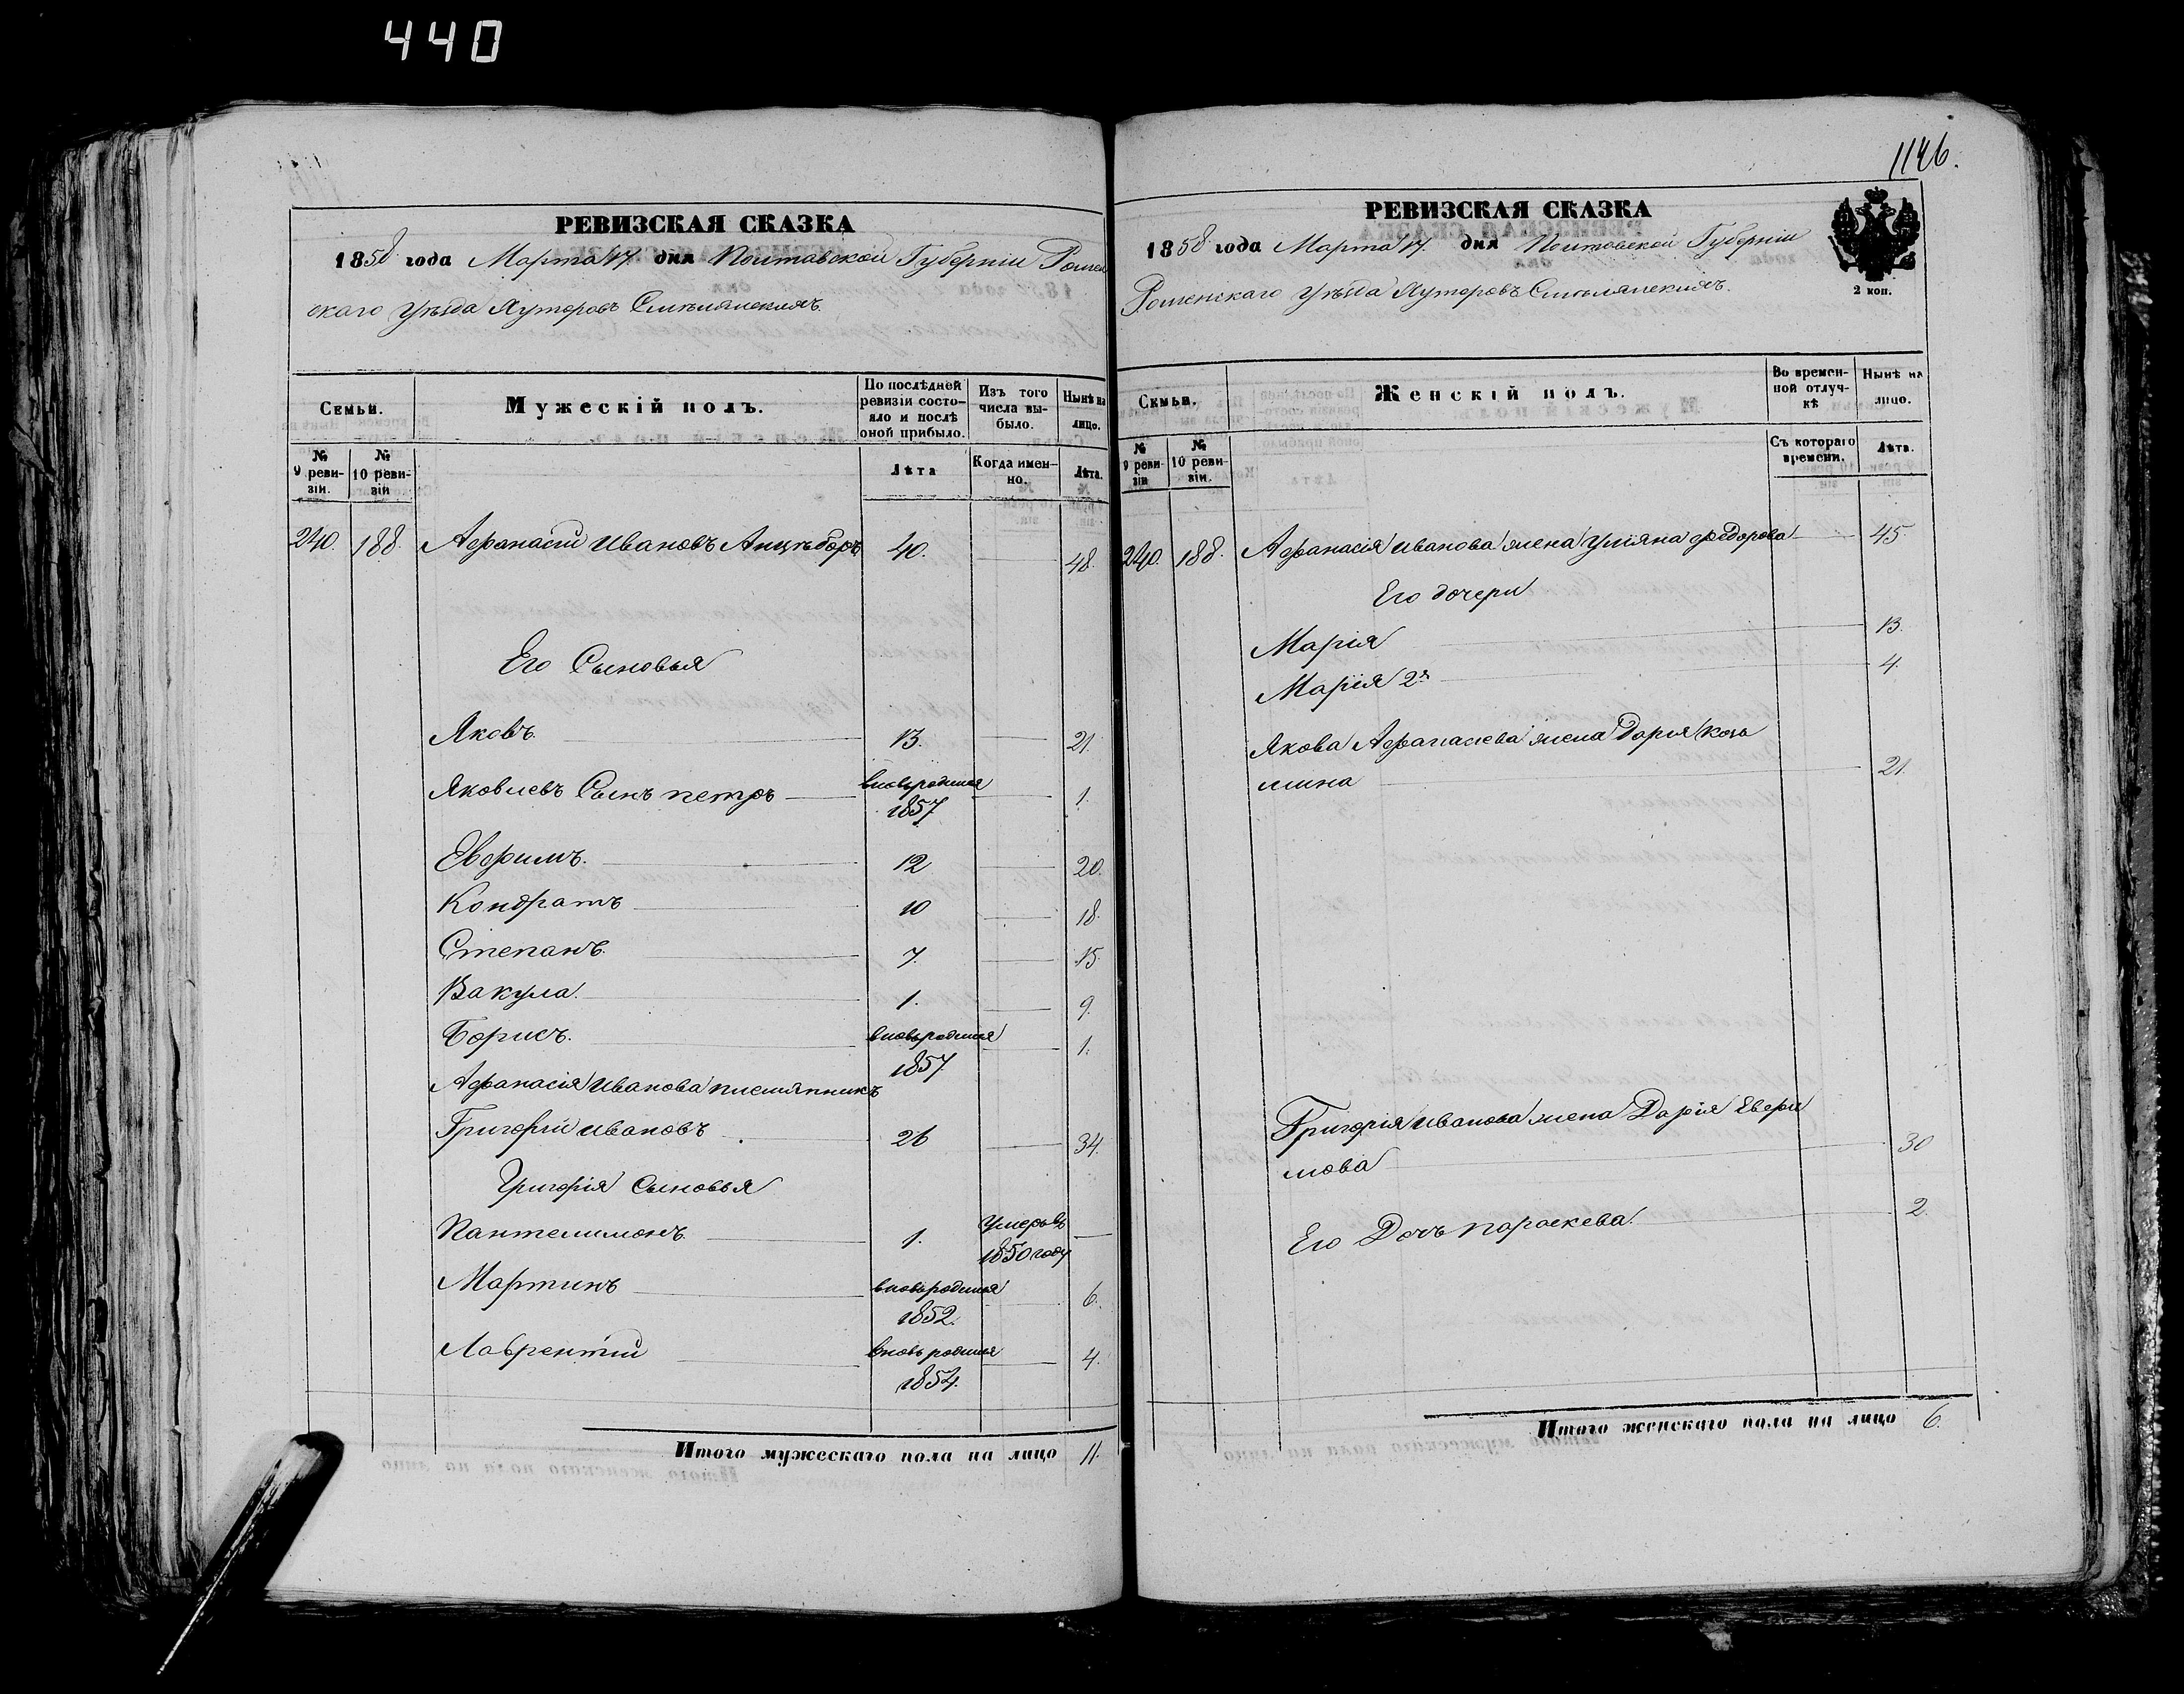 440
РЕВИЗСКАЯ СКАЗКА
1858 года Марта 17. дня Полтавской Губерніи Ромен
скаго Уѣзда Хуторовъ Смѣлянскихъ.
Семьи.
Мужескій полъ.
По послѣдней ревизіи состояло и послѣ оной прибыло.
Изъ того числа выбыло.
Нынѣ на лицо.
№ 9 ревизіи.
№ 10 ревизіи
Лѣта
Когда именно.
Лѣта.
240. 188. Афанасій Ивановъ 40. 48.
Его Сыновья
Яковъ. 13. 21.
Яковлевъ Сынъ петръ вновьродился 1857 1.
Евфимъ. 12 20.
Кондратъ 10 18.
Степанъ. 7. 15.
Вакула. 1. 9.
Борисъ. вновьродился 1857 1.
Афанасія Иванова племянникъ
Григорій Ивановъ 26 34.
Григорія Сыновья
Пантелимонъ. 1. Умеръ въ 1850 году
Мартинъ вновьродился 1852. 6.
Лаврентій вновьродился 1854. 4.
Итого мужескаго пола на лицо 11.
1146.
РЕВИЗСКАЯ СКАЗКА
1858 года Марта 17. дня Полтавской Губерніи
Роменскаго Уѣзда Хуторовъ Смѣлянскихъ.
2 коп.
Семьи.
Женскій полъ.
Во временной отлучкѣ
Нынѣ на лицо.
№ 9 ревизіи
№ 10 ревизіи.
Съ котораго времени.
Лѣта.
240. 188. Афанасія Иванова жена Уліяна федорова 45.
Его дочери
Марія 13.
Марія 2я 4.
Якова Афанасіева жена Дарія Козь
мина 21.
Григорія Иванова жена Дарія Евфи
мова 30
Его Дочь параскева. 2.
Итого женскаго пола на лицо 6.